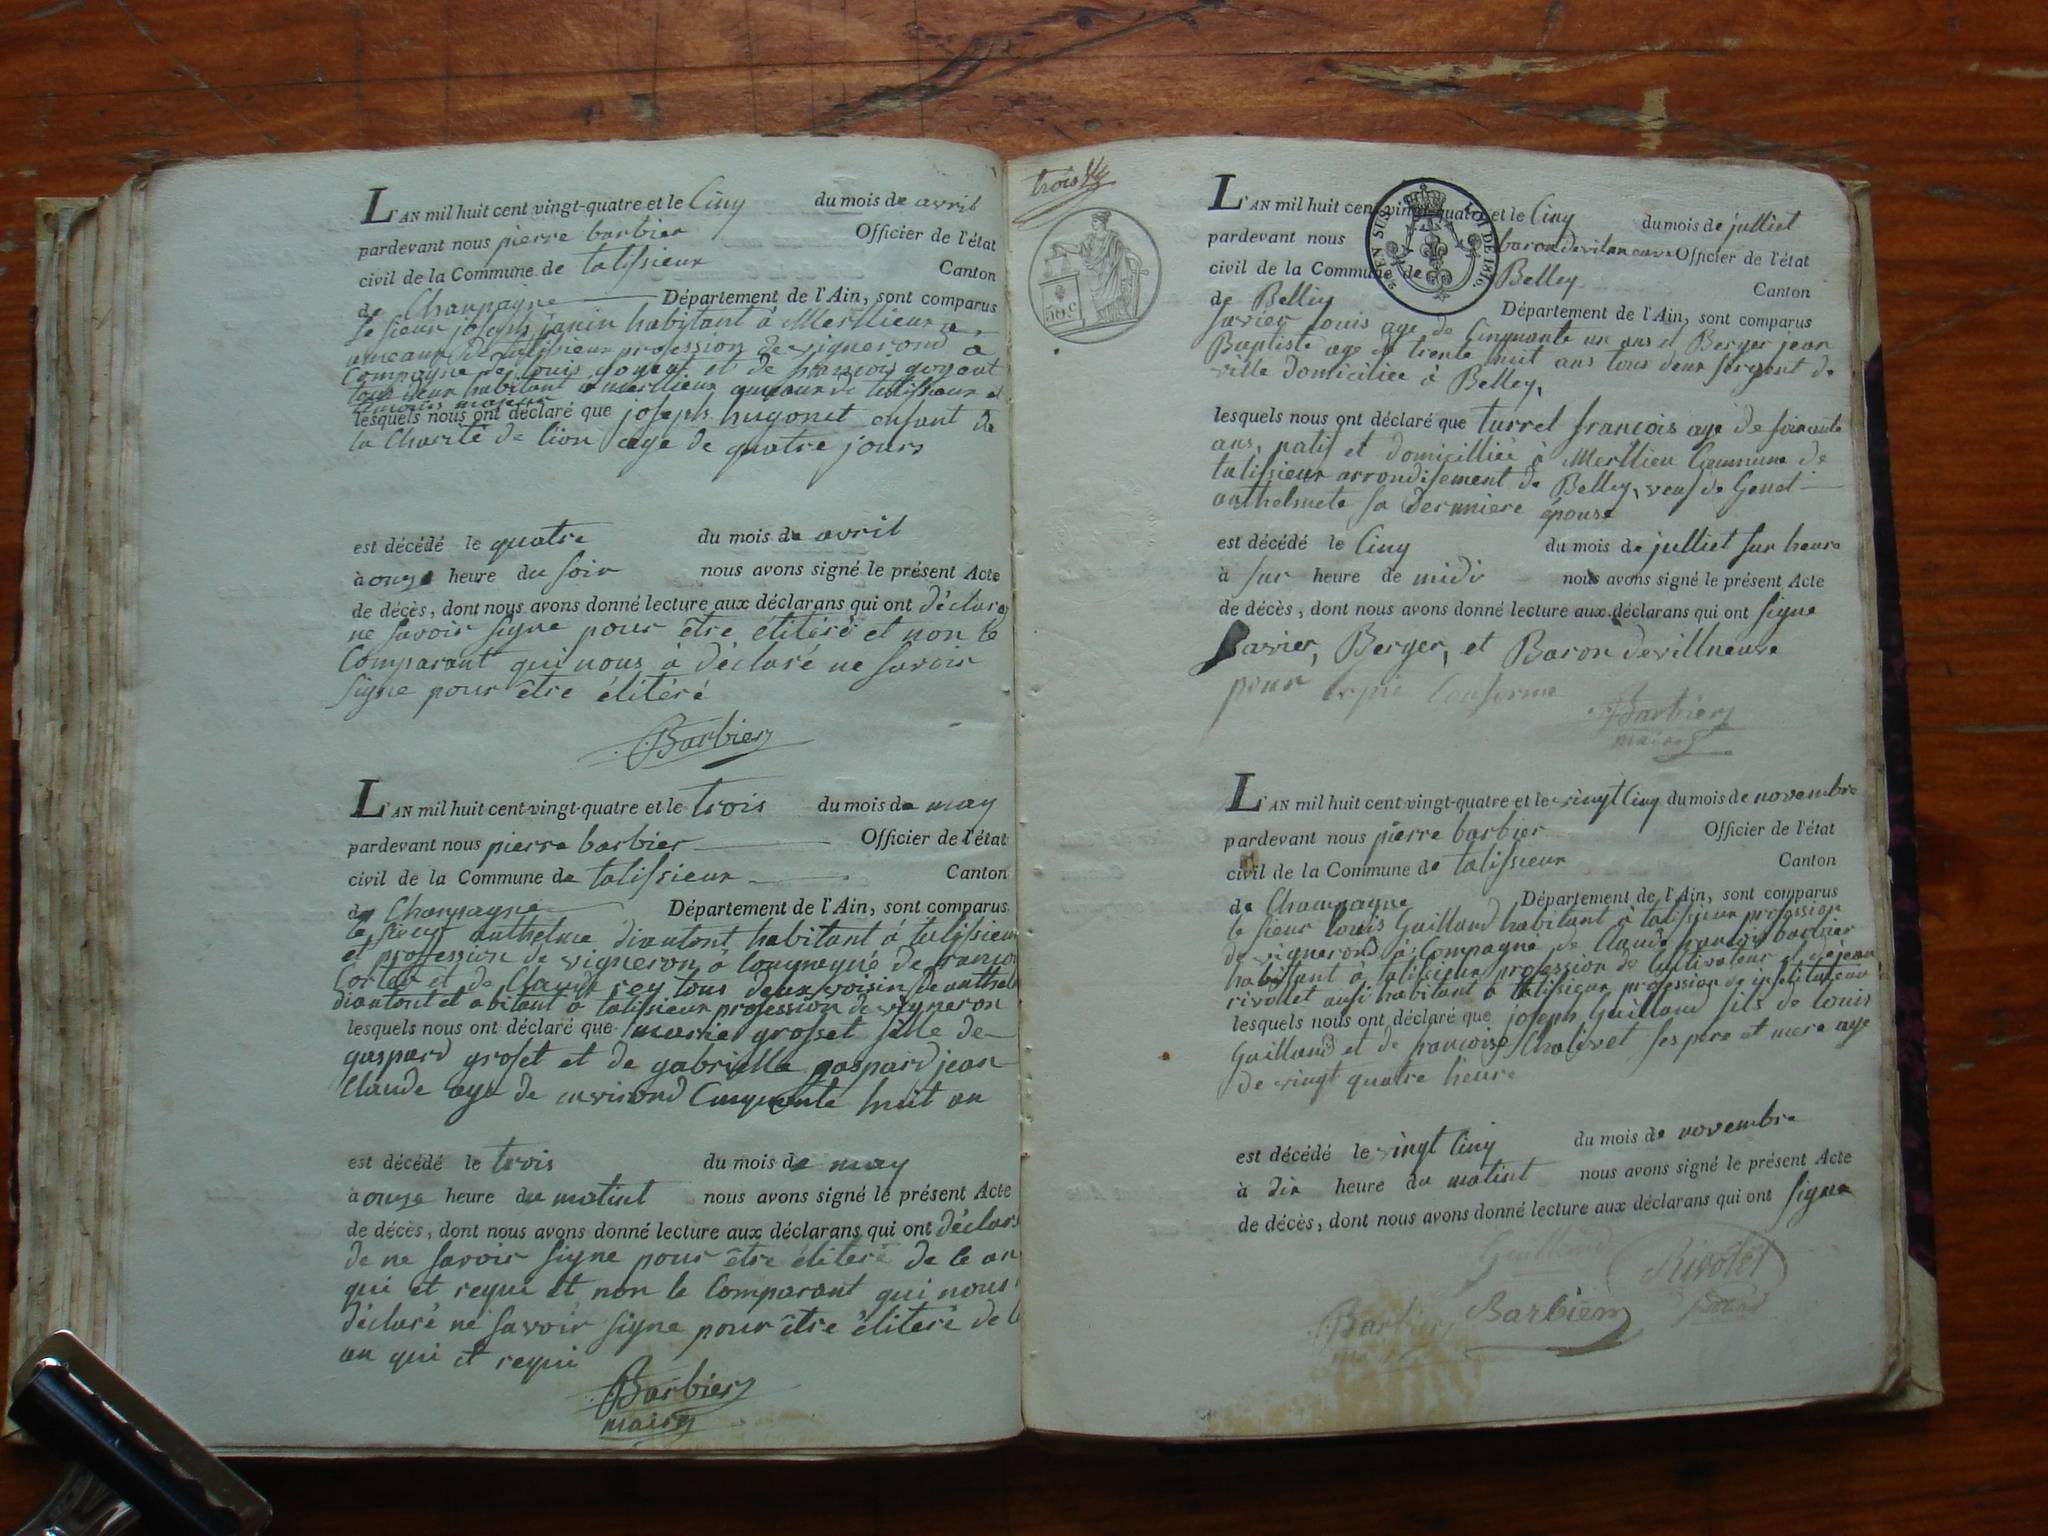 L'AN mil huit cent vingt-quatre et le Cinq du mois de avril
pardevant nous pierre barbier Officier de l'état
civil de la Commune de talissieux Canton
de Champagne Département de l'Ain, sont comparus
le sieur joseph janin habitant à Merllieux
ameaux de talissieux profession de vignerond a
Compagne de louis gonent et de francois gonont
tous deux habitant a merllieux ameaux de talissieux et
temoins majeur
lesquels nous ont déclaré que joseph hugonet enfant de
la Charité de lion age de quatre jours
est décédé le quatre du mois de avril
à onze heure du soir nous avons signé le présent Acte
de décès, dont nous avons donné lecture aux déclarans qui ont déclare
ne savoir signe pour être élitéré et non le
Comparant qui nous à déclaré ne savoir
signe pour être élitéré
Barbier
L'AN mil huit cent vingt-quatre et le trois du mois de may
pardevant nous pierre barbier Officier de l'état
civil de la Commune de talissieux Canton
de Champagne Département de l'Ain, sont comparus
le sieur anthelme diantont habitant à talissieu
et proffession de vigneron à Compagné de francoi
Cortet et de Claude rey tous deux voisin de anthel
diantont et abitant à talissieux profession de vigneron
lesquels nous ont déclaré que marie grosset fille de
gaspard groset et de gabrielle gaspard jean
Claude age de environd Cinquante huit an
est décédé le trois du mois de may
à onze heure du matint nous avons signé le présent Acte
de décès, dont nous avons donné lecture aux déclarans qui ont déclare
de ne savoir signe pour être éliteré de ce an
qui et requi et non le Comparant qui nous
déclaré ne savoir signe pour être éliteré de c
an qui et requi
Barbier
maire
trois
50 c
L'AN mil huit cent vingt-quatre et le Cinq du mois de julliet
EN SUS LOI DE 1816
pardevant nous baron devilaneuve Officier de l'état
civil de la Commune de Belley Canton
de Belley Département de l'Ain, sont comparus
Savier louis age de Cinquante un ans et Berger jean
Baptiste age de trente huit ans tous deux sergent de
ville domiciliée à Belley,
lesquels nous ont déclaré que turrel françois age de soixante
ans, natif et domicilliée à Merllieu Commune de
talissieux arrondisement de Belley, veuf de Genet
anthelmete sa dernniere épouse
est décédé le Cinq du mois de julliet sur heure
à sur heure de midi nous avons signé le présent Acte
de décès, dont nous avons donné lecture aux déclarans qui ont signe
Savier, Berger, et Baron devillneuve
pour Copie Conforme
Barbier
maire
L'AN mil huit cent vingt-quatre et le vingt Cinq du mois de novembre
pardevant nous pierre barbier Officier de l'état
civil de la Commune de talissieux Canton
de Chaampagne Département de l'Ain, sont comparus
le sieur louis Guilland habitant à talissieux profession
de vignerond à Compagné de Claude francois barbier
habittant à talissieux profession de Cultivateur et de jean
rivollet ausi habitant à talissieux profession de institutaur
lesquels nous ont déclaré que joseph Guilland fils de louis
Guilland et de francoise Chalivet ses pere et mere age
de vingt quatre heure
est décédé le vingt Cinq du mois de novembre
à dix heure du matint nous avons signé le présent Acte
de décès, dont nous avons donné lecture aux déclarans qui ont signe
Rivolet
Barbier Barbier
maire